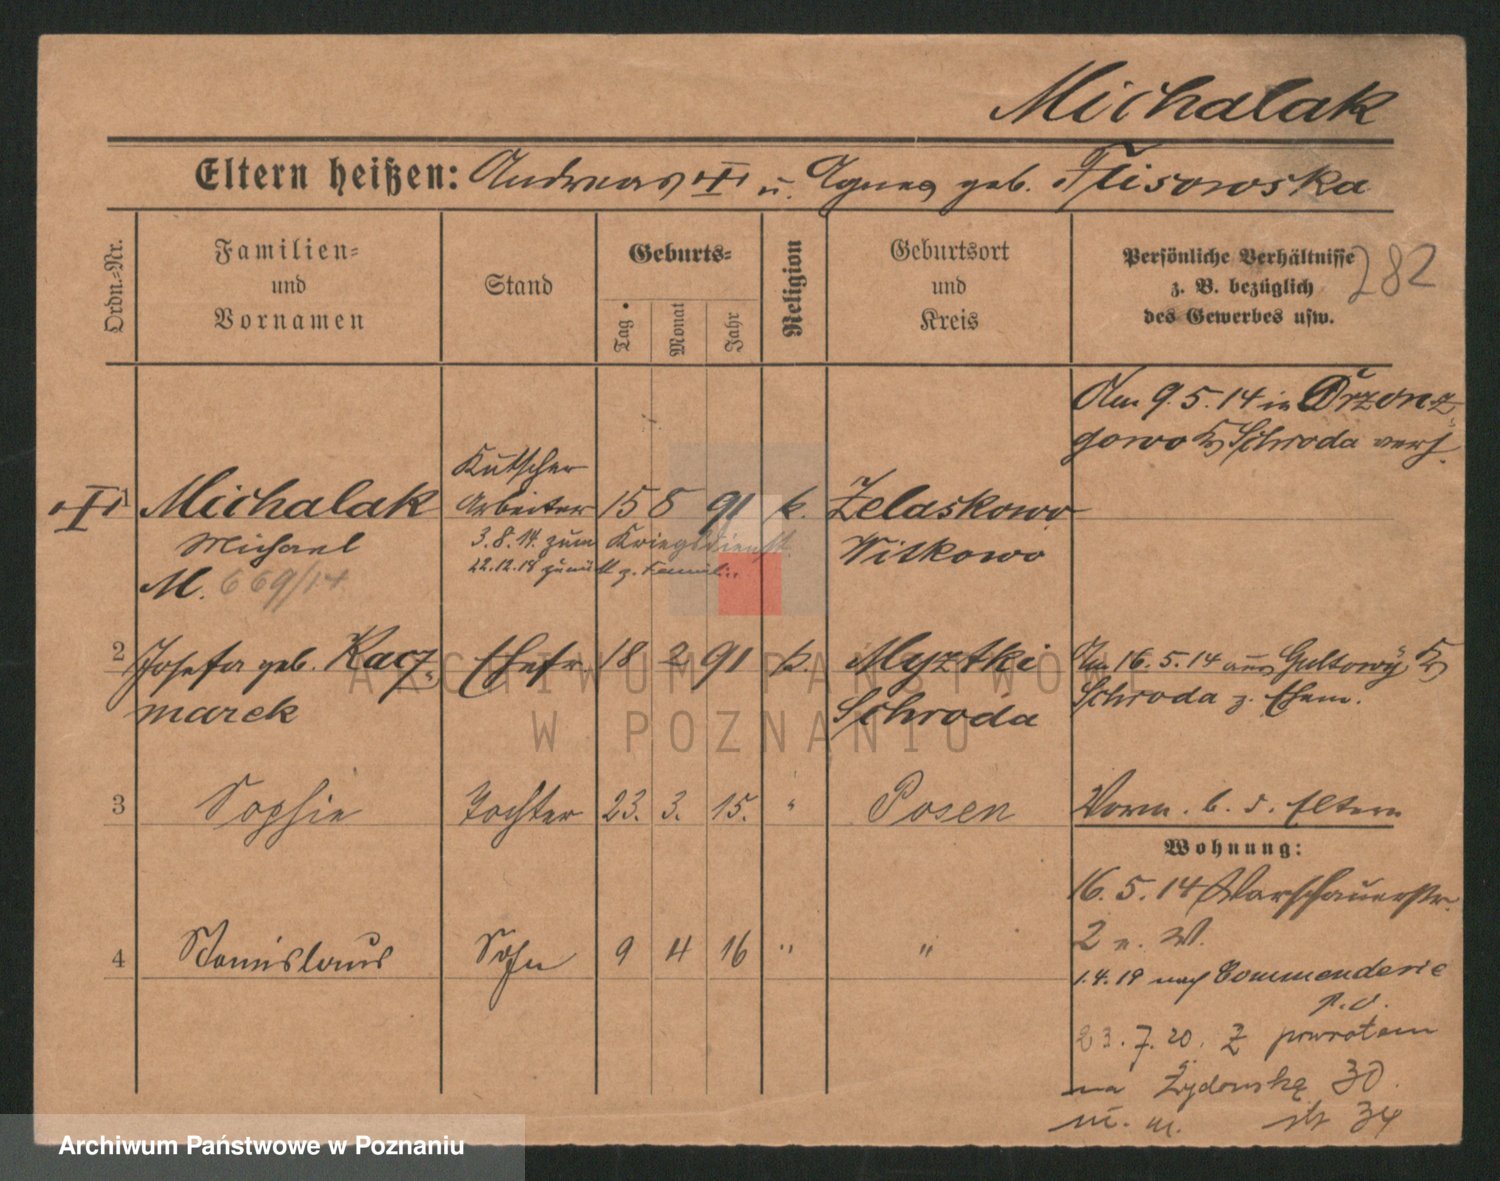 Michalak
Eltern heißen: Andreas u. Agnes geb. Flisowska
Ordn.=Nr.
Familien=
und
Vornamen
Stand
Geburts=
Tag
Monat
Jahr
Religion
Geburtsort
und
Kreis
Persönliche Verhältnisse
z. B. bezüglich
des Gewerbes usw.
282
Am 9.5.14 in Drzonz-
gowo Kr Schroda verh.
1 Michalak Kutscher Arbeiter 15 8 91 k. Zelaskowo
Michael 3.8.14. zum Kriegsdienst. Witkowo
M. 669/14 22.12.18 zurück z. Famili..
2 Josefa geb. Kacz- Ehefr 18 2 91 k. Myztki Am 16.5.14 aus Gultowy Kr
marek Schroda Schroda z. Ehem.
3 Sophie Tochter 23. 3. 15. " Posen Vorm. b. d. Eltern
Wohnung:
16.5.14 Warschauerstr.
2 n. W.
4 Stanislaus Sohn 9 4 16 " "
1.4.19 nach Commenderie
23.7.20. Z powrotem
na Żydowską 30.
34
ARCHIWUM PAŃSTWOWE
W POZNANIU
Archiwum Państwowe w Poznaniu